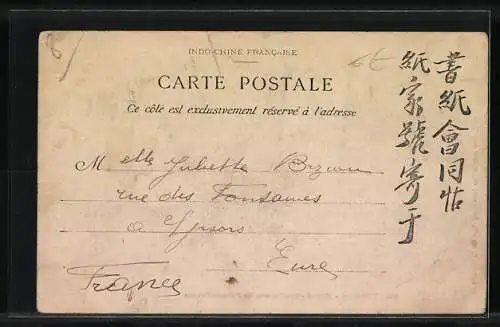 INDO-CHINE FRANÇAISE
CARTE POSTALE
Ce côté est exclusivement réservé à l'adresse
Melle Juliette
rue des Fontaines
a Gisors
Eure
France
書紙會同帖
紙家號寄于